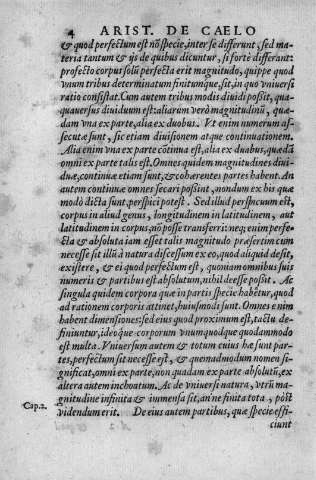 4 ARIST. DE CAELO
& quod perfectum est nõ specie, inter se differunt, sed ma-
teria tantum & ijs de quibus dicuntur, si fortè differant:
profecto corpus solũ perfecta erit magnitudo, quippe quod
vnum tribus determinatum finitumque, sit, in quo vniuersi
ratio consistat. Cum autem tribus modis diuidi possit, qua-
quauersus diuiduum est: aliarum verò magnitudinũ, quæ-
dam vna ex parte, alia ex duobus. Vt enim numerum as-
secutæ sunt, sic etiam diuisionem atque continuationem.
Alia enim vna ex parte cõtinua est, alia ex duabus, quædã
omni ex parte talis est. Omnes quidem magnitudines diui-
duæ, continuæ etiam sunt, & cohærentes partes habent. An
autem continuæ omnes secari possint, nondum ex his quæ
modò dicta sunt, perspici potest. Sed illud perspicuum est,
corpus in aliud genus, longitudinem in latitudinem, aut
latitudinem in corpus, nõ posse transferri: neq; enim perfe-
cta & absoluta iam esset talis magnitudo præsertim cum
necesse sit illũ à natura discessum ex eo, quod aliquid desit,
existere, & ei quod perfectum est, quoniam omnibus suis
numeris & partibus est absolutum, nihil deesse possit. Ac
singula quidem corpora quæ in partis specie habẽtur, quod
ad rationem corporis attinet, huiusmodi sunt. Omnes enim
habent dimensiones: sed eius quod proximum est, tactu de-
finiuntur, ideoque corporum vnumquodque quodammodo
est multa. Vniuersum autem & totum cuius hæ sunt par-
tes, perfectum sit necesse est, & quemadmodum nomen si-
gnificat, omni ex parte, non quadam ex parte absolutũ, ex
altera autem inchoatum. Ac de vniuersi natura, vtrũ ma-
gnitudine infinita & immensa sit, an ne finita tota, pòst
Cap.2. videndum erit. De eius autem partibus, quæ specie effi-
ciunt